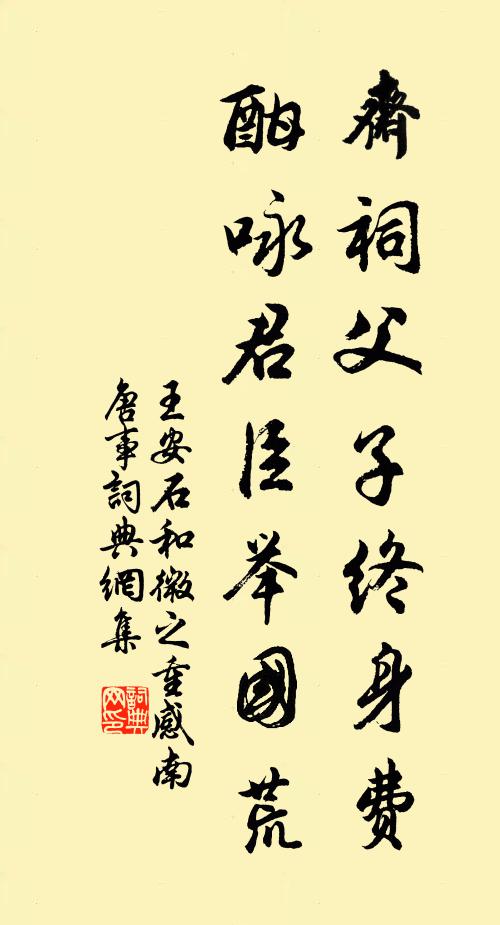 齋祠父子終身費
酣咏君臣举國荒
王安石和微之重感南
唐事詞典網集
詞典网印